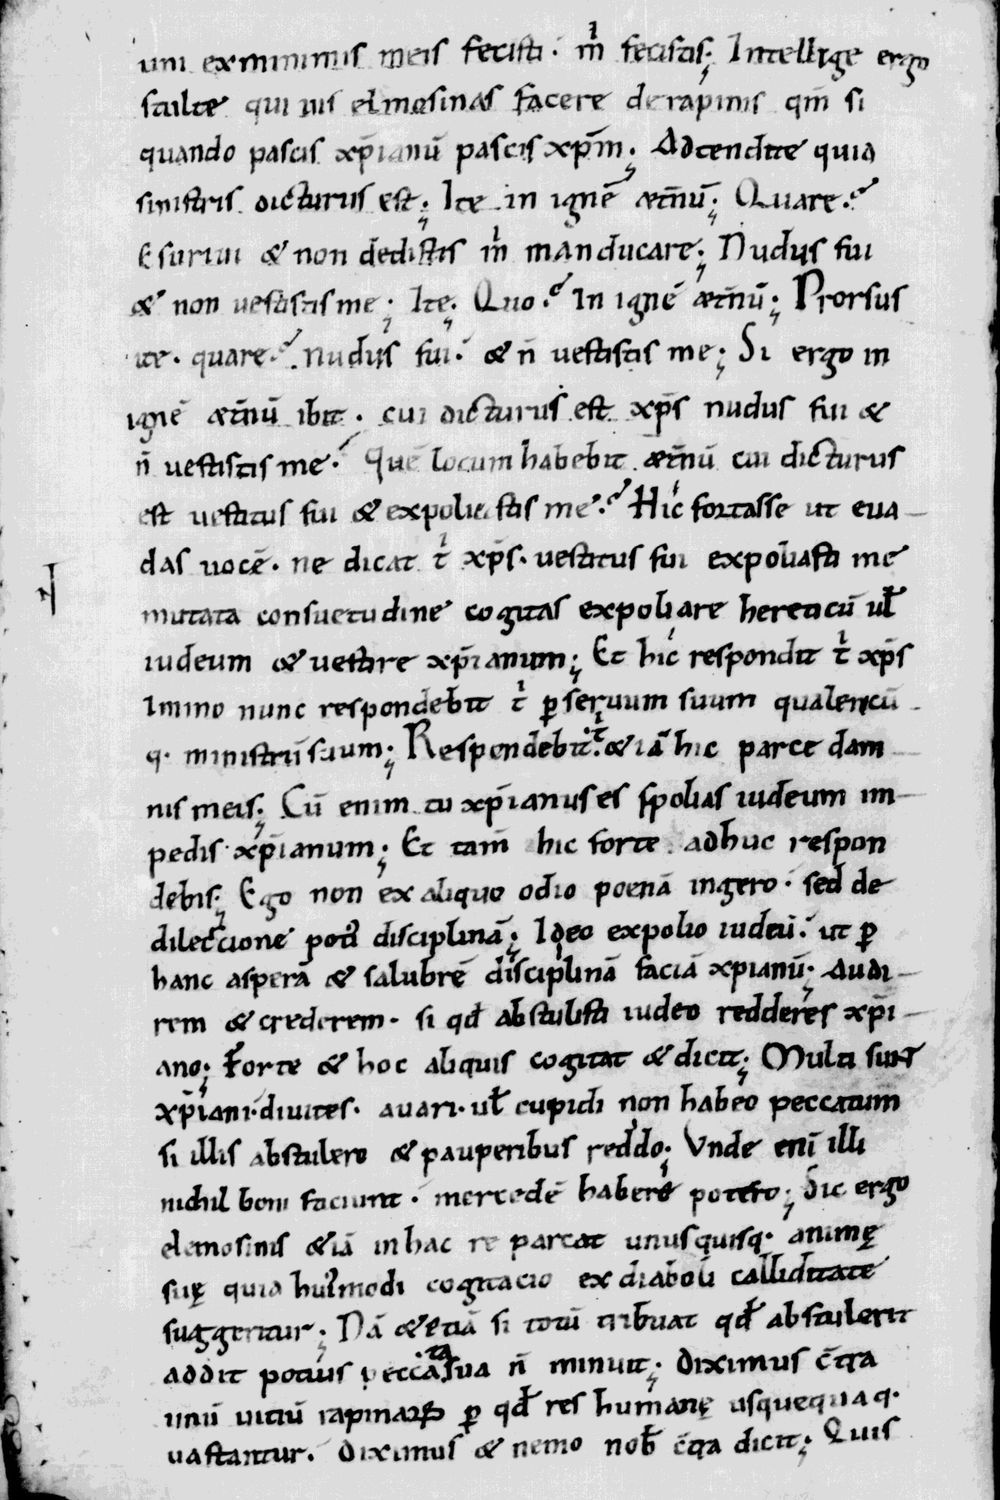 uni ex minimis meis fecisti · m̄ fecistis; Intellige ergo
stulte qui uis elmosinas facere de rapinis qm̄ si
quando pascis xp̄ianū pascis xp̄m; Adtendite quia
sinistris dicturus est; Ite in ignē ætn̄ū; Quare?
Esuriui & non dedistis m̄ manducare; Nudus fui
& non uestistis me; Ite; Quo? In ignē ætn̄ū; Prorsus
ite · quare? nudus fui · & n̄ uestistis me; Si ergo in
ignē ætn̄ū ibit · cui dicturus est xp̄s nudus fui &
n̄ uestistis me · Quē locum habebit ætn̄ū cui dicturus
est uestitus fui & expoliastis me? Hic fortasse ut eua
das uocē · ne dicat t̄ xp̄s · uestitus fui expoliasti me
mutata consuetudine cogitas expoliare hereticū ul̄
iudeum & uestire xp̄ianum; Et hic respondit t̄ xp̄s
Immo nunc respondebit t̄ ꝑ seruum suum qualemcū
q· ministrū suum; Respondebit t̄ & iā hic parce dam
nis meis; Cū enim tu xp̄ianus es spolias iudeum im
pedis xp̄ianum; Et tam̄ hic forte adhuc respon
debis; Ego non ex aliquo odio poenā ingero · sed de
dileccione poti᷒ disciplinā; Ideo expolio iudeū · ut ꝑ
hanc asperā & salubrē disciplinā faciā xpianū; Audi
rem & crederem · si qd̄ abstulisti iudeo redderes xp̄i
ano; Forte & hoc aliquis cogitat & dicit; Multi sunt
xp̄iani · diuites · auari · ul̄ cupidi non habeo peccatum
si illis abstulero & pauperibus reddo; Vnde enī illi
nichil boni faciunt · mercedē habere potero; Sic ergo
elemosinis & iā in hac re parcat unusquisq· animę
suę quia hui᷒modi cogitacio ex diaboli calliditate
suggeritur; Nā & etiā si totū tribuat qd̄ abstulerit
addit potius peccata sua n̄ minuit; Diximus c̄tra
unū uitiū rapinaꝝ ꝑ qd̄ res humanę usquequaq·
uastantur · Diximus & nemo nob̄ c̄tra dicit; Quis